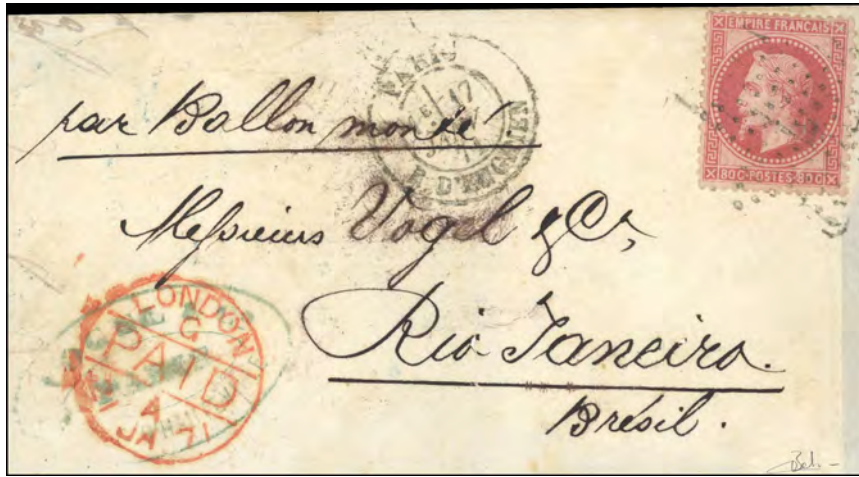 EMPIRE FRANCAIS
80C·POSTES·80C
PARIS
17
JANV
R. D'ENGHIEN
par Ballon monté.
Messieurs Vogel & Co,
Rio Janeiro.
Brésil.
LONDON
G
PAID
JA 71